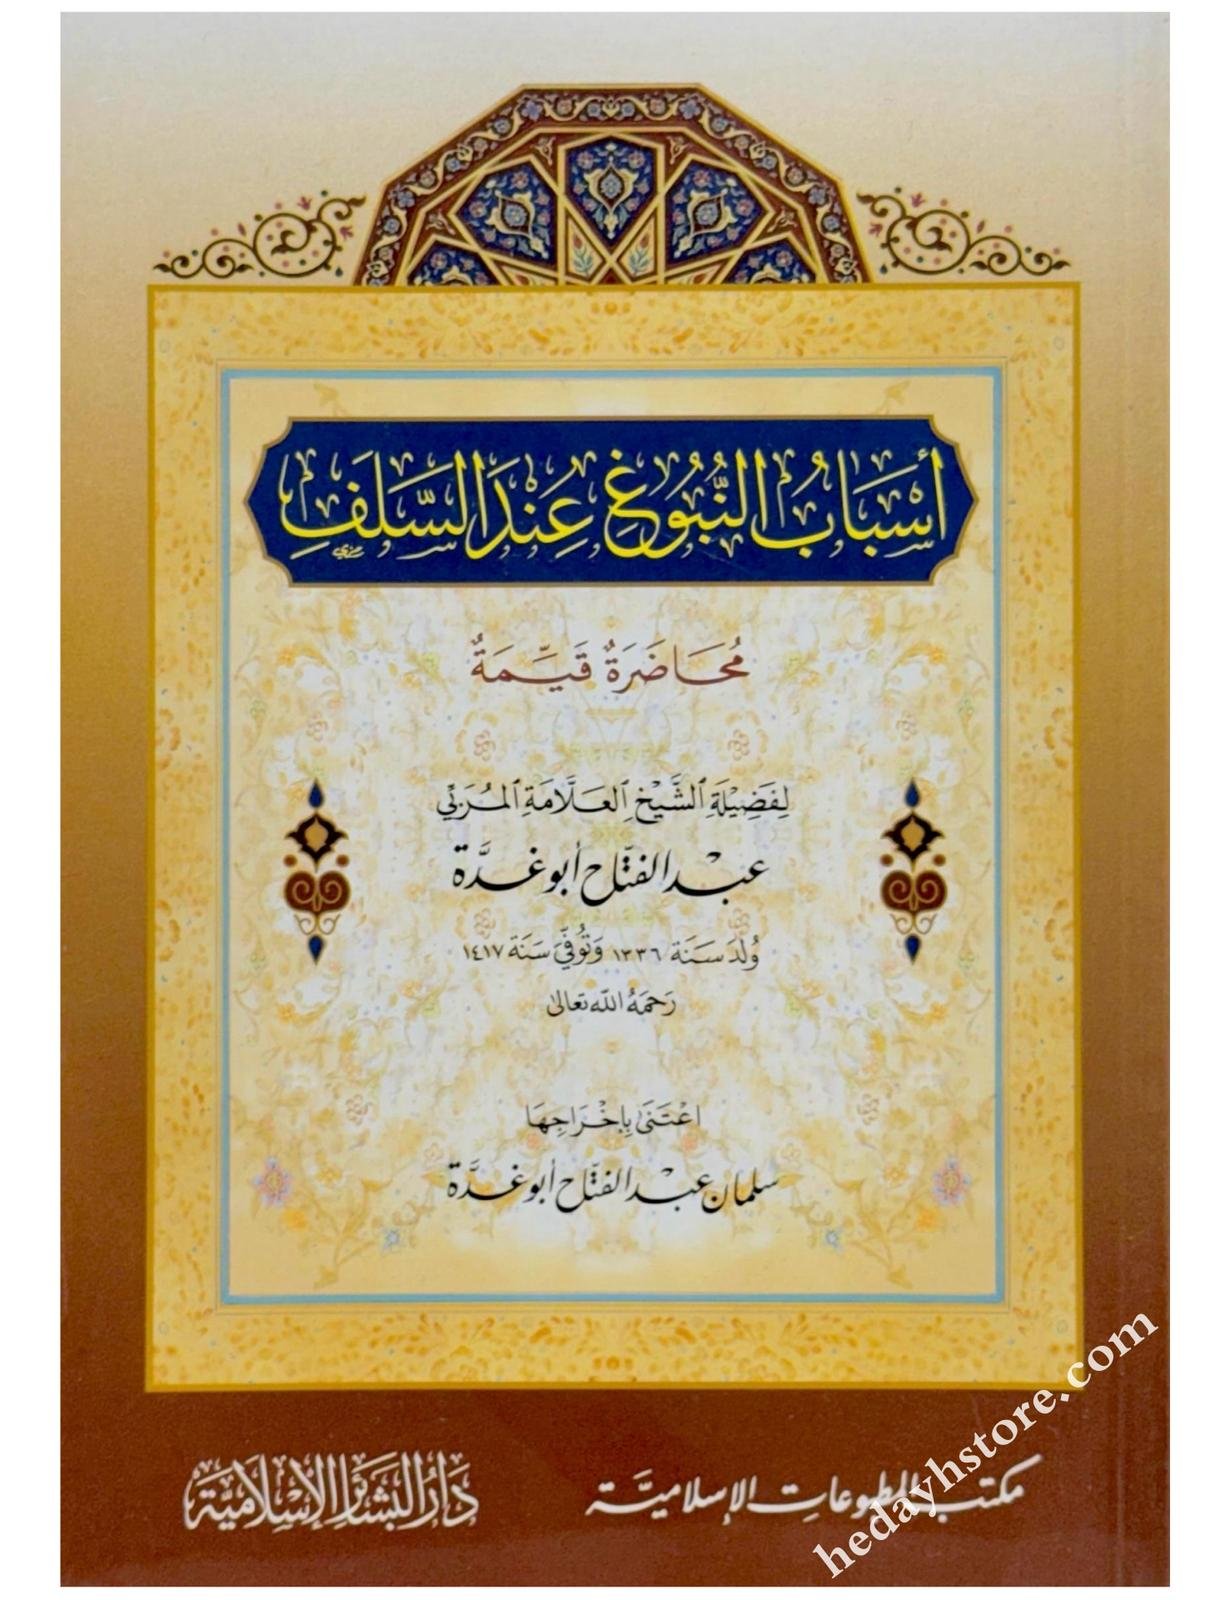 أَسْبَابُ النُّبُوغِ عِنْدَ السَّلَفِ
مُحَاضَرَةٌ قَيِّمَةٌ
لِفَضِيلَةِ الشَّيْخِ العَلَّامَةِ المُرَبِّي
عبد الفتّاح أبو غدّة
وُلدَ سَنَة ١٣٣٦ وَتُوفِّيَ سَنَة ١٤١٧
رَحمَهُ اللّه تعالىٰ
اعْتَنَىٰ بِإخْرَاجِهَا
سلمان عبد الفتّاح أبو غدّة
مكتب المطبوعات الإسلاميّة
دَارُ البَشَائِرِ الإِسْلَامِيَّة
hedayhstore.com